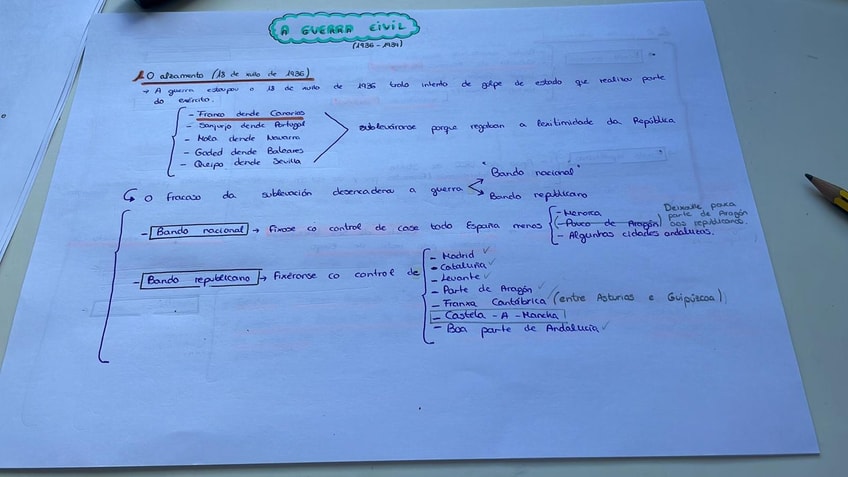 A GUERRA CIVIL
(1936 - 1939)
1 O alzamento (18 de xullo de 1936)
→ A guerra estoupou o 18 de xullo de 1936 tralo intento de golpe de estado que realizou parte
do exército.
- Franco dende Canarias
- Sanjurjo dende Portugal
- Mola dende Navarra
- Goded dende Baleares
- Queipo dende Sevilla
subleváronse porque negaban a lexitimidade da República
↳ O fracaso da sublevación desencadenou a guerra
"Bando nacional"
Bando republicano
- Bando nacional → fíxose co control de case toda España menos
- Menorca
- Pouco de Aragón
- Algunhas cidades andaluzas.
Deixalle pouca
parte de Aragón
aos republicanos.
- Bando republicano → Fixéronse co control de
- Madrid ✓
- Cataluña ✓
- Levante ✓
- Parte de Aragón ✓
- Franxa Cantábrica (entre Asturias e Guipúscoa)
- Castela - A - Mancha
- Boa parte de Andalucía ✓